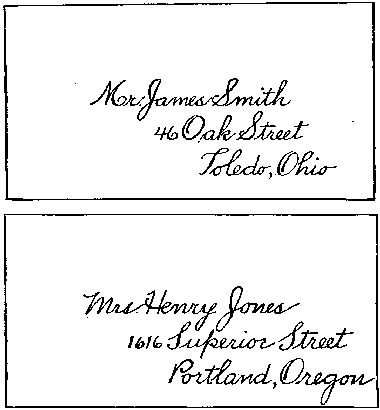 Mr. James Smith
46 Oak Street
Toledo, Ohio
Mrs Henry Jones
1616 Superior Street
Portland, Oregon